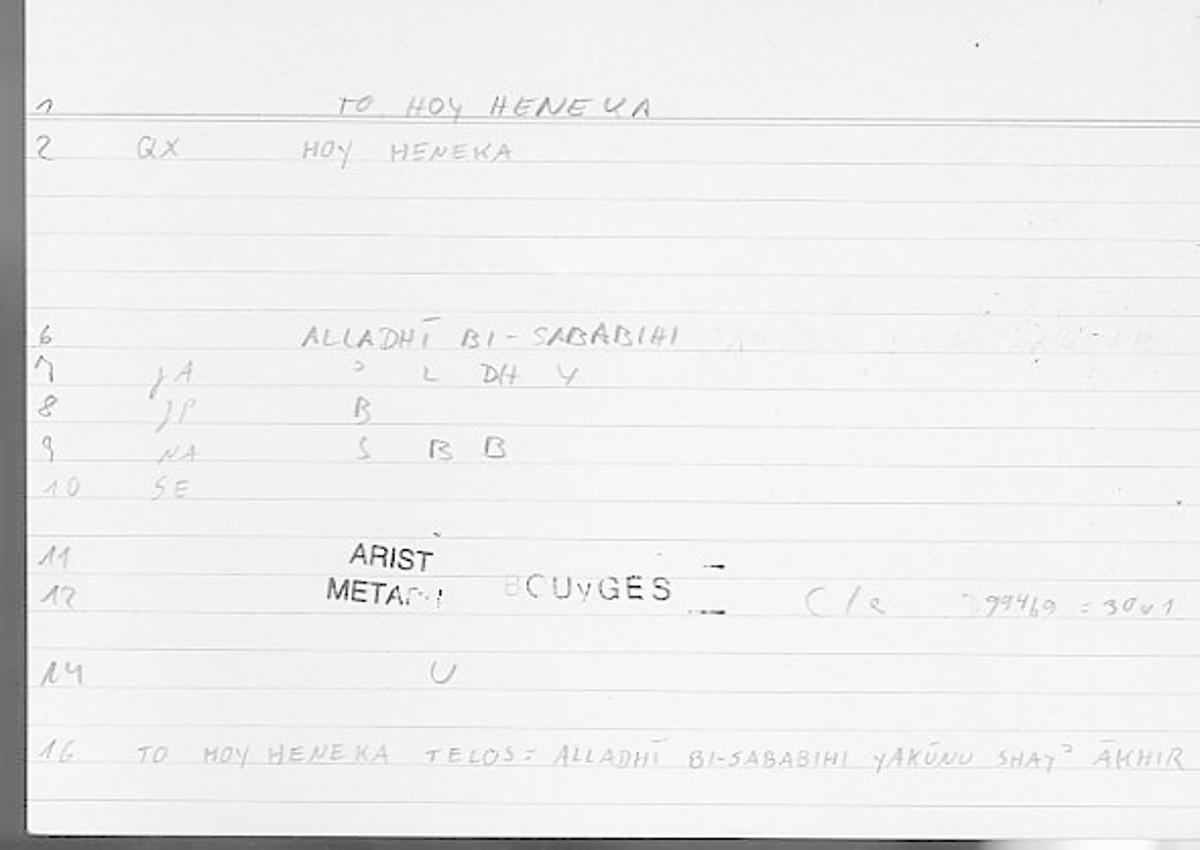 1 TO HOY HENEKA
2 QX HOY HENEKA
6 ALLADHĪ BI-SABABIHI
7 JA ʾ L DH Y
8 JP B
9 NA S B B
10 SE
11 ARIST
12 METAPH BOUYGES C/a 994b9 = 30v1
14 U
16 TO HOY HENEKA TELOS = ALLADHĪ BI-SABABIHI YAKŪNU SHAYʾ ĀKHIR